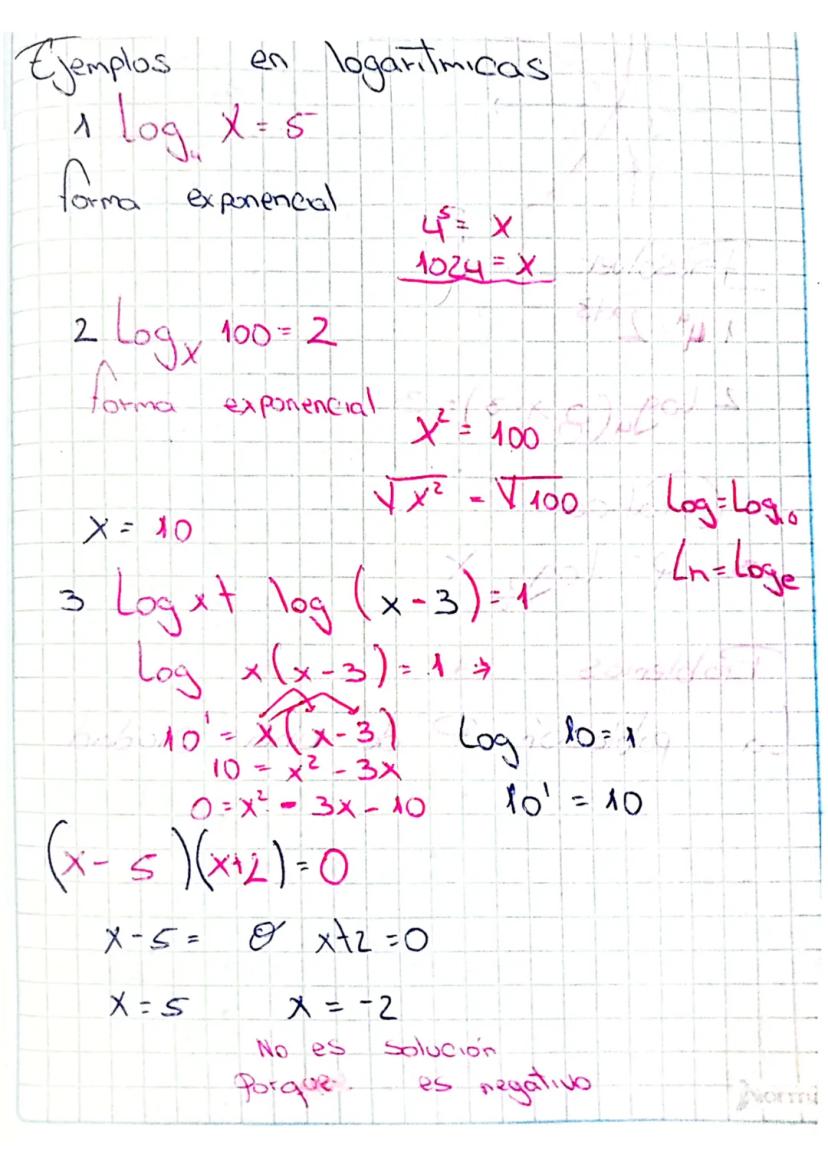 Ejemplos en logarítmicas
1 Log₄ X = 5
forma exponencial
4⁵ = X
1024 = X
2 Logₓ 100 = 2
forma exponencial
X² = 100
√x² = √100
Log = Log₁₀
x = 10
Ln = Loge
3 Log x + log (x - 3) = 1
Log x(x - 3) = 1 →
10¹ = x(x - 3)
Log 10 = 1
10 = x² - 3x
0 = x² - 3x - 10
10¹ = 10
(x - 5)(x+2) = 0
x - 5 = 0 x+2 = 0
x = 5 x = -2
No es solución
Porque es negativo